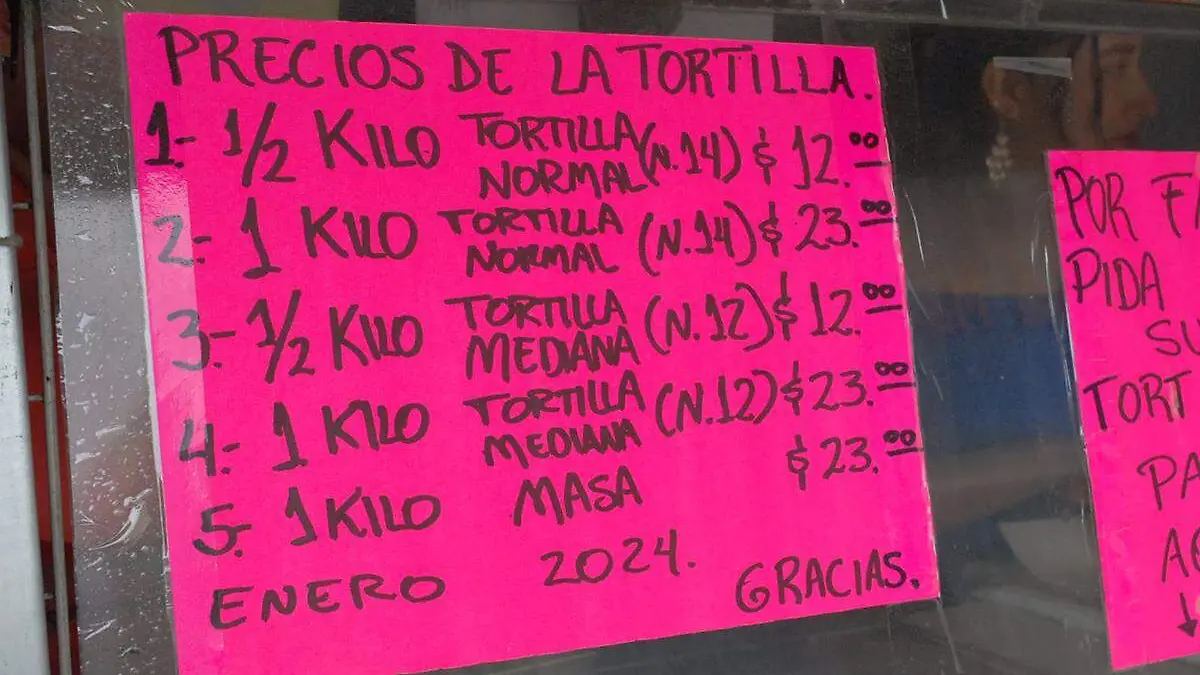 PRECIOS DE LA TORTILLA.
1.- 1/2 KILO TORTILLA NORMAL (N.14) $ 12.00
2.- 1 KILO TORTILLA NORMAL (N.14) $ 23.00
3.- 1/2 KILO TORTILLA MEDIANA (N.12) $ 12.00
4.- 1 KILO TORTILLA MEDIANA (N.12) $ 23.00
5.- 1 KILO MASA $ 23.00
ENERO 2024. GRACIAS.
POR
PIDA